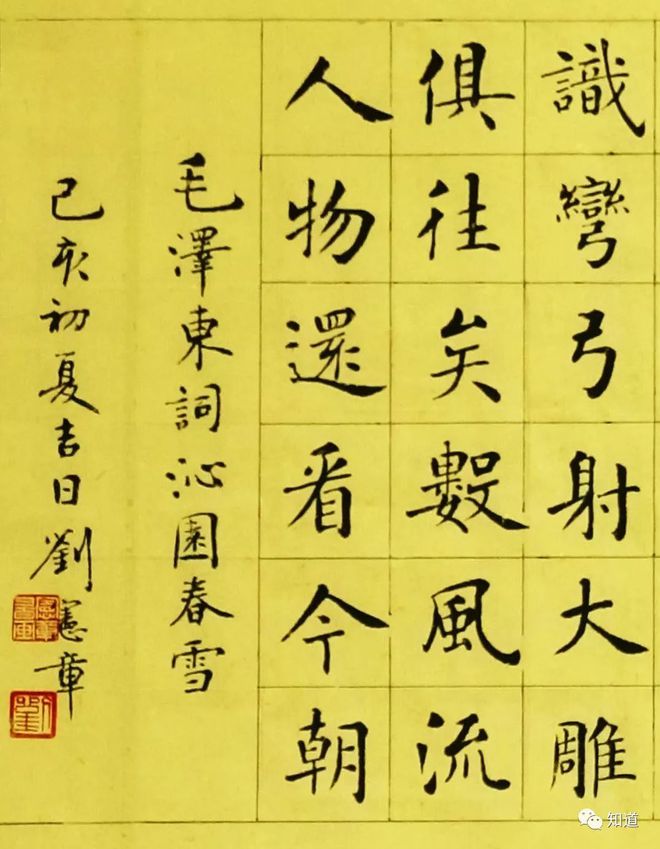 識彎弓射大雕
俱往矣數風流
人物還看今朝
毛澤東詞沁園春雪
己亥初夏吉日劉憲章
劉
知道